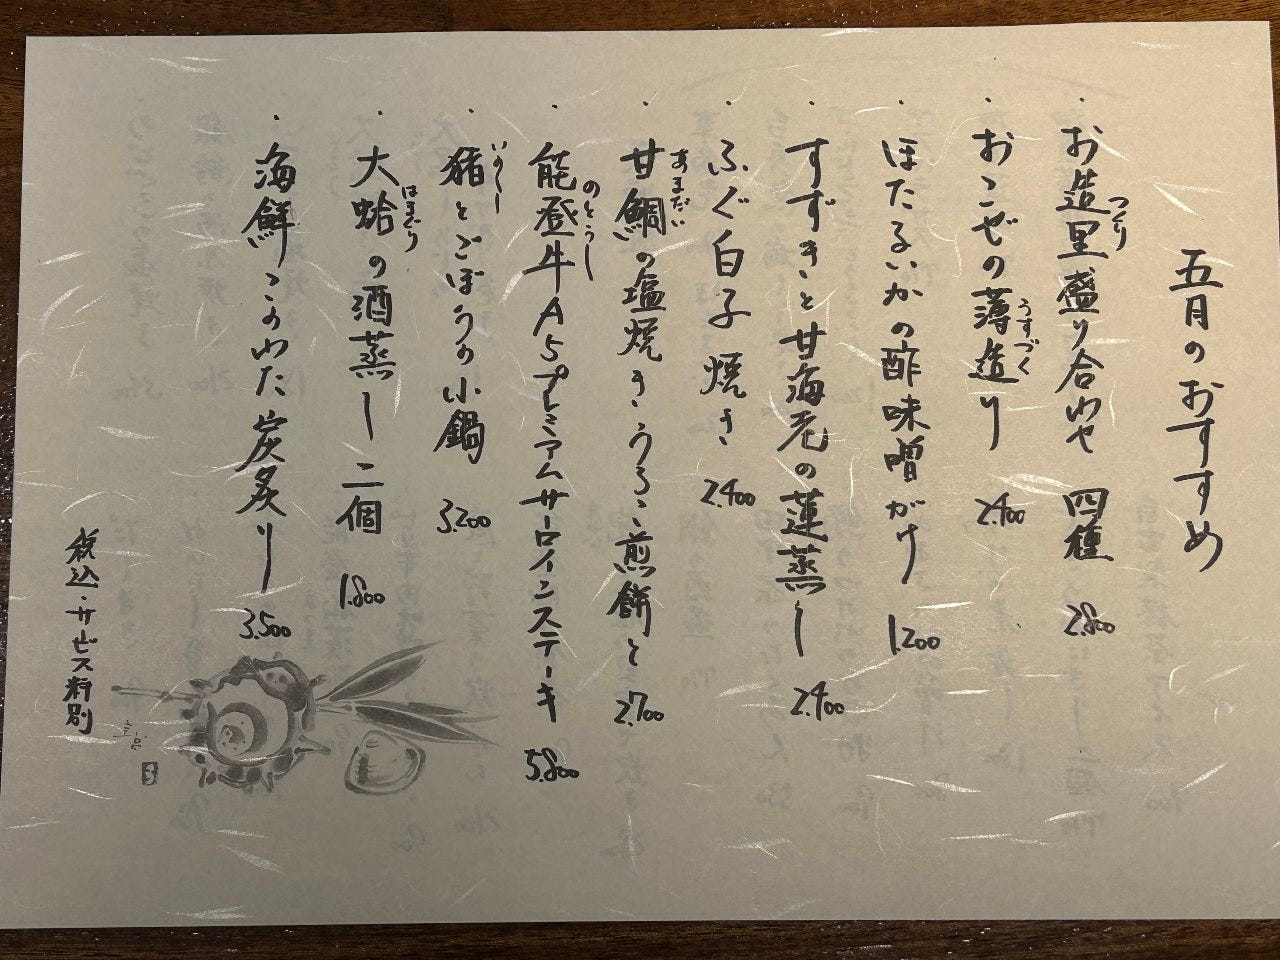 五月のおすすめ
・お造里盛り合わせ 四種 2.800
つくり
・おこぜの薄造り 2.400
うすづくり
・ほたるいかの酢味噌がけ 1.200
・すずきと甘海老の蓮蒸し 2.400
・ふぐ白子焼き 2.400
・甘鯛の塩焼き・うろこ煎餅と 2.700
あまだい
・能登牛A5プレミアムサーロインステーキ 5.800
のとうし
・猪とごぼうの小鍋 3.200
いのしし
・大蛤の酒蒸し 二個 1.800
はまぐり
・海鮮このわた炭炙り 3.500
税込・サービス料別